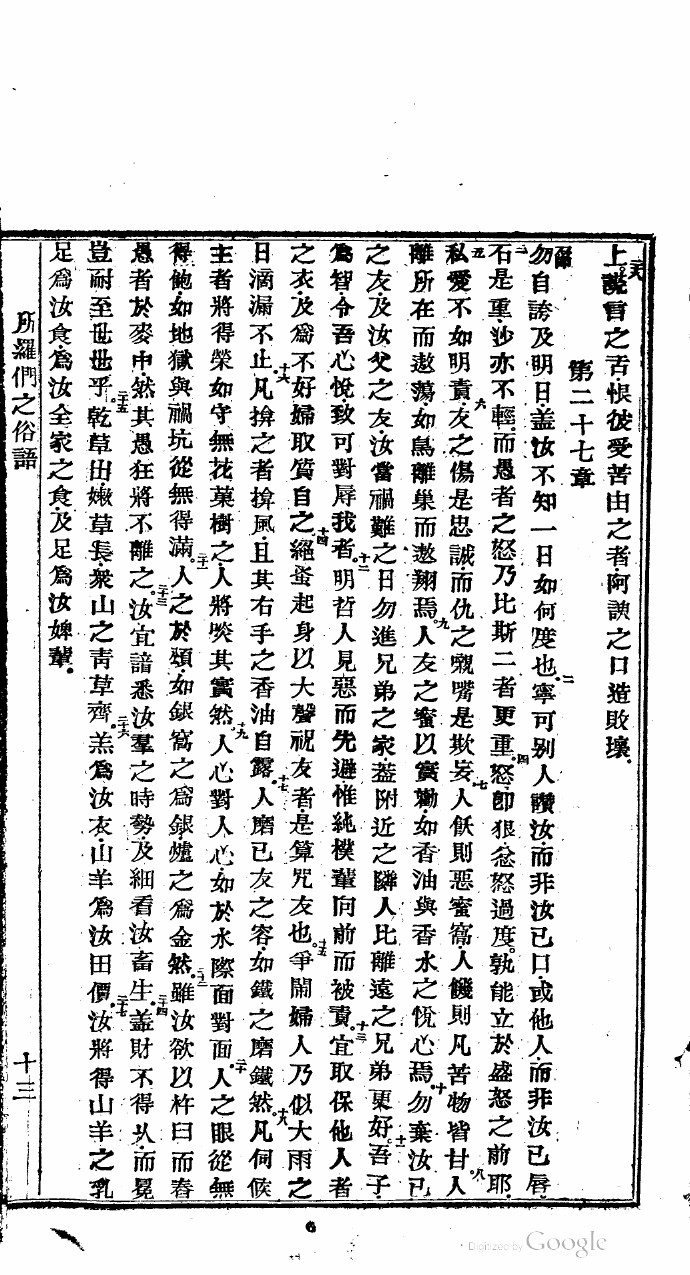 上謊言之舌恨彼受苦由之者阿諛之口造敗壞
第二十七章
勿自誇及明日盖汝不知一日如何度也寧可别人讚汝而非汝已口或他人而非汝已唇
石是重沙亦不輕而愚者之怒乃比斯二者更重怒卽狠忿怒過度孰能立於盛怒之前耶
私愛不如明責友之傷是忠誠而仇之嘴是欺妄人飫則惡蜜窩人饑則凡苦物皆甘人
離所在而遨蕩如鳥離巢而遨翔焉人友之蜜以實勸如香油與香水之悅心焉勿棄汝已
之友及汝父之友汝當禍難之日勿進兄弟之家葢附近之隣人比離遠之兄弟更好吾子
爲智令吾心悅致可對辱我者明哲人見惡而先避惟純樸輩向前而被責宜取保他人者
之衣及爲不好婦取質自之繩蚤起身以大聲祝友者是算咒友也爭鬧婦人乃似大雨之
日滴漏不止凡揜之者揜風且其右手之香油自露人磨已友之容如鐵之磨鐵然凡伺候
主者將得榮如守無花菓樹之人將啖其實然人心對人心如於水際面對面人之眼從無
得飽如地獄與禍坑從無得滿人之於頌如銀窩之爲銀爐之爲金然雖汝欲以杵臼而舂
愚者於麥中然其愚狂將不離之汝宜諳悉汝羣之時勢及細看汝畜生葢財不得乆而冕
豈耐至世世乎乾草出嫩草長衆山之靑草齊羔爲汝衣山羊爲汝田價汝將得山羊之乳
足爲汝食爲汝全家之食及足爲汝婢輩
所羅們之俗語
十三
6
Digitized by Google